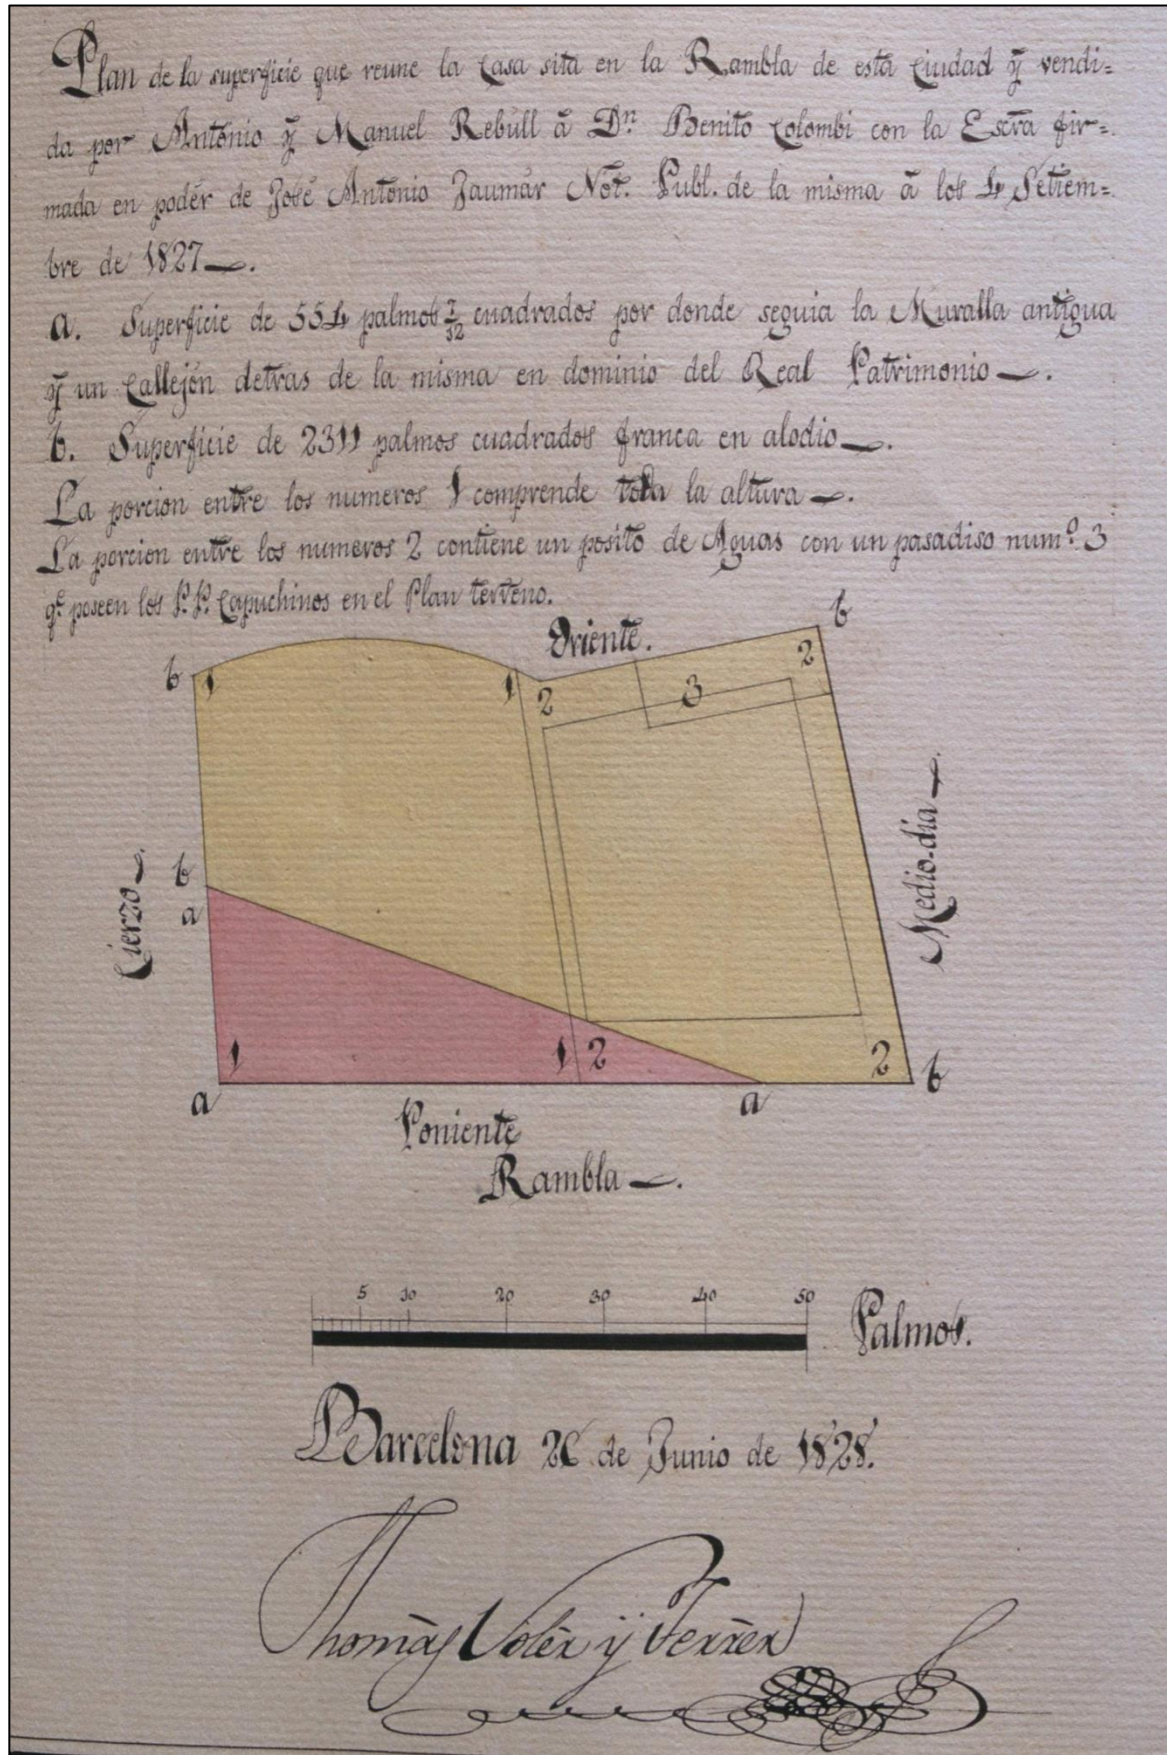 Plan de la superficie que reune la Casa sita en la Rambla de esta Ciudad y vendi=
da por Antonio y Manuel Rebull à Dn. Benito Colombi con la Escra fir=
mada en poder de José Antonio Jaumar Not. Publ. de la misma à los 4 Setiem=
bre de 1827.
a. Superficie de 554 palmos 7/32 cuadrados por donde seguia la Muralla antigua
y un Callejón detras de la misma en dominio del Real Patrimonio.
b. Superficie de 2311 palmos cuadrados franca en alodio.
La porcion entre los numeros 1 comprende toda la altura.
La porcion entre los numeros 2 contiene un posito de Aguas con un pasadiso num.o 3
q.e poseen los P.P. Capuchinos en el Plan terreno.
Oriente.
b
b 1 1 2 3 2
b
a
Cierzo
Medio-dia
1 1 2 2
a a b
Poniente
Rambla.
5 10 20 30 40 50 Palmos.
Barcelona 26 de Junio de 1828.
Thomàs y Ferrer